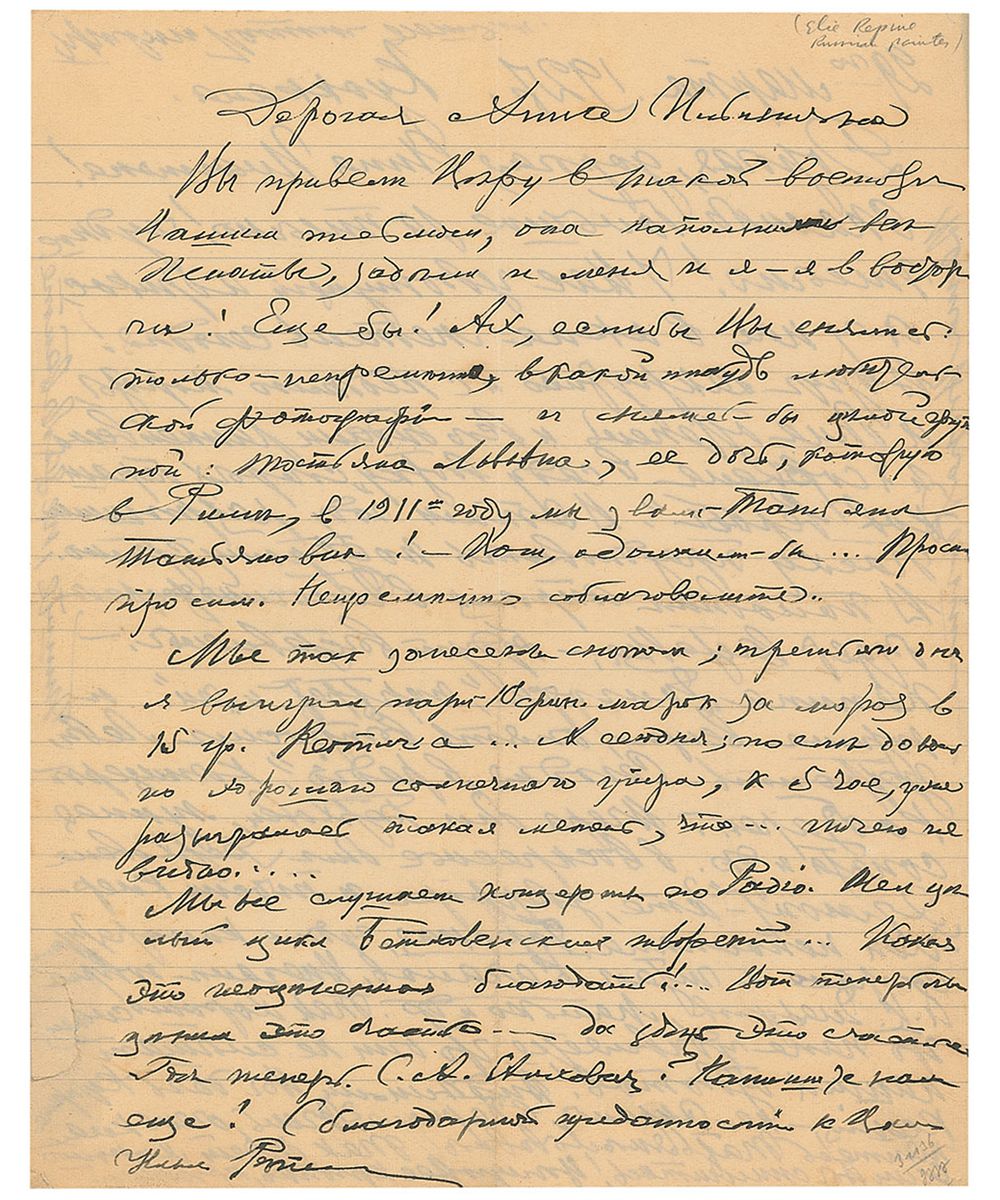 (Elie Repine
Russian painter)
Дорогая Анна Ильинична
Вы привели Веру в такой восторг
Вашим письмом, она
и меня и я – я в востор
ге! Еще бы! Ах, если бы Вы снялись
только – непременно, в какой нибудь любитель
ской фотографіи – и снялись бы целой груп
пой: Татьяна Львовна, ее дочь, которую
в Риме, в 1911м году мы звали – Татьяна
Татьяновна! – Вот, одолжили-бы ... Просим
просим. Непременно соблаговолите..
Мы так занесены снегом; третьяго дня
я выиграл пари 10 фин. марок за мороз в
15 гр. ... А сегодня, после доволь
но хорошаго солнечного утра, к 5 час, уже
разыгралась такая метель, что --- ничего не
видно.....
Мы все слушаем концерты по Радіо. Шел це
лый цикл Бетховенских творений ... Какая
это неоцененная благодать!... Вот теперь бы
это --- да где это счастье
Где теперь С. А. Стахович? Напишите нам
еще! С благодарной преданностію к Вам
Илья Репин